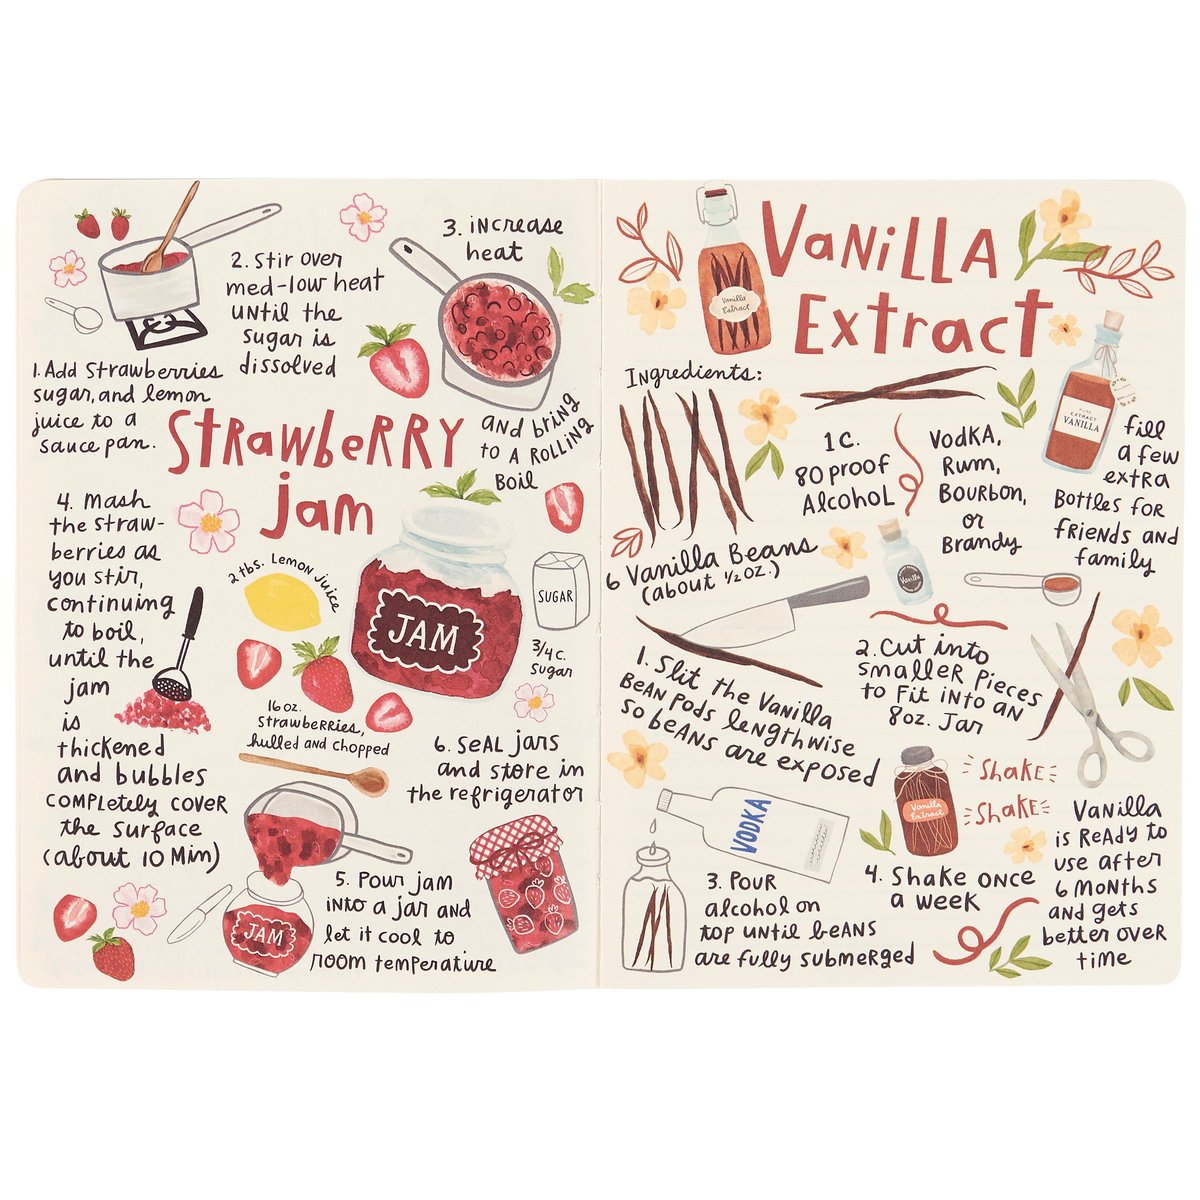 Strawberry
jam
1. Add Strawberries
sugar, and lemon
juice to a
sauce pan.
2. Stir over
med-low heat
until the
sugar is
dissolved
3. increase
heat
and bring
to a rolling
boil
4. Mash
the straw-
berries as
you stir,
continuing
to boil,
until the
jam
is
thickened
and bubbles
completely cover
the surface
(about 10 min)
2 tbs. Lemon Juice
JAM
SUGAR
3/4 c.
sugar
16 oz.
Strawberries,
hulled and chopped
5. Pour jam
into a jar and
let it cool to
room temperature
JAM
6. Seal jars
and store in
the refrigerator
Vanilla
Extract
Vanilla
Extract
Ingredients:
6 Vanilla Beans
(about 1/2 oz.)
1 c.
80 proof
Alcohol
Vodka,
Rum,
Bourbon,
or
Brandy
EXTRACT
VANILLA
fill
a few
extra
Bottles for
friends and
family
Vanilla
1. Slit the Vanilla
Bean pods lengthwise
so beans are exposed
2. Cut into
smaller pieces
to fit into an
8oz. Jar
VODKA
3. Pour
alcohol on
top until beans
are fully submerged
Vanilla
Extract
Shake
Shake
4. Shake once
a week
Vanilla
is ready to
use after
6 months
and gets
better over
time